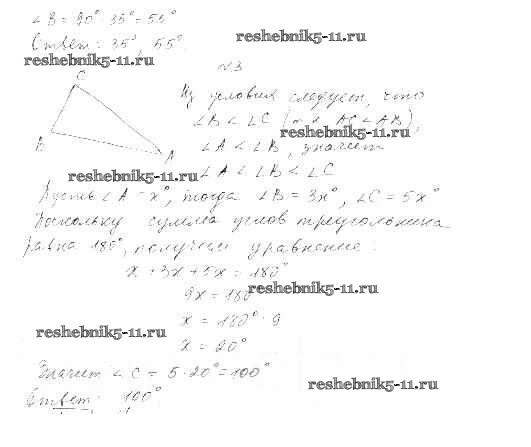 ∠B = 90° - 35° = 55°
Ответ: 35°, 55°.
reshebnik5-11.ru
reshebnik5-11.ru
№3
C
B
A
Из условия следует, что
∠B < ∠C (т.к. AC < AB),
reshebnik5-11.ru
∠A < ∠B, значит
reshebnik5-11.ru
∠A < ∠B < ∠C
Пусть ∠A = x°, тогда ∠B = 3x°, ∠C = 5x°
Поскольку сумма углов треугольника
равна 180°, получим уравнение:
x + 3x + 5x = 180°
9x = 180°
reshebnik5-11.ru
x = 180° : 9
reshebnik5-11.ru
x = 20°
Значит ∠C = 5 · 20° = 100°
reshebnik5-11.ru
Ответ: 100°